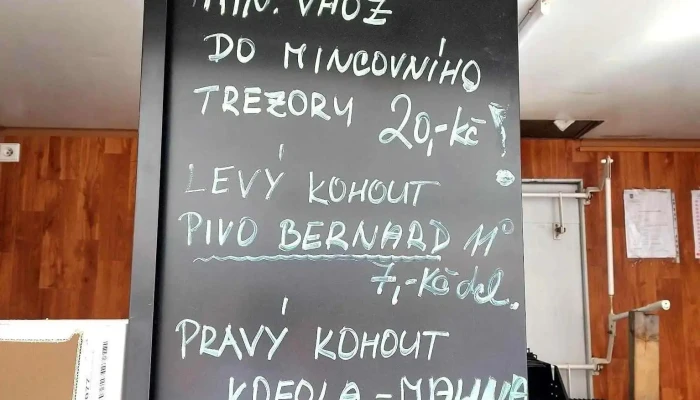 MIN. VHOZ
DO MINCOVNÍHO
TREZORU 20,-Kč!
LEVÝ KOHOUT
PIVO BERNARD 11°
7,-Kč del.
PRAVÝ KOHOUT
KOFOLA - MALINA